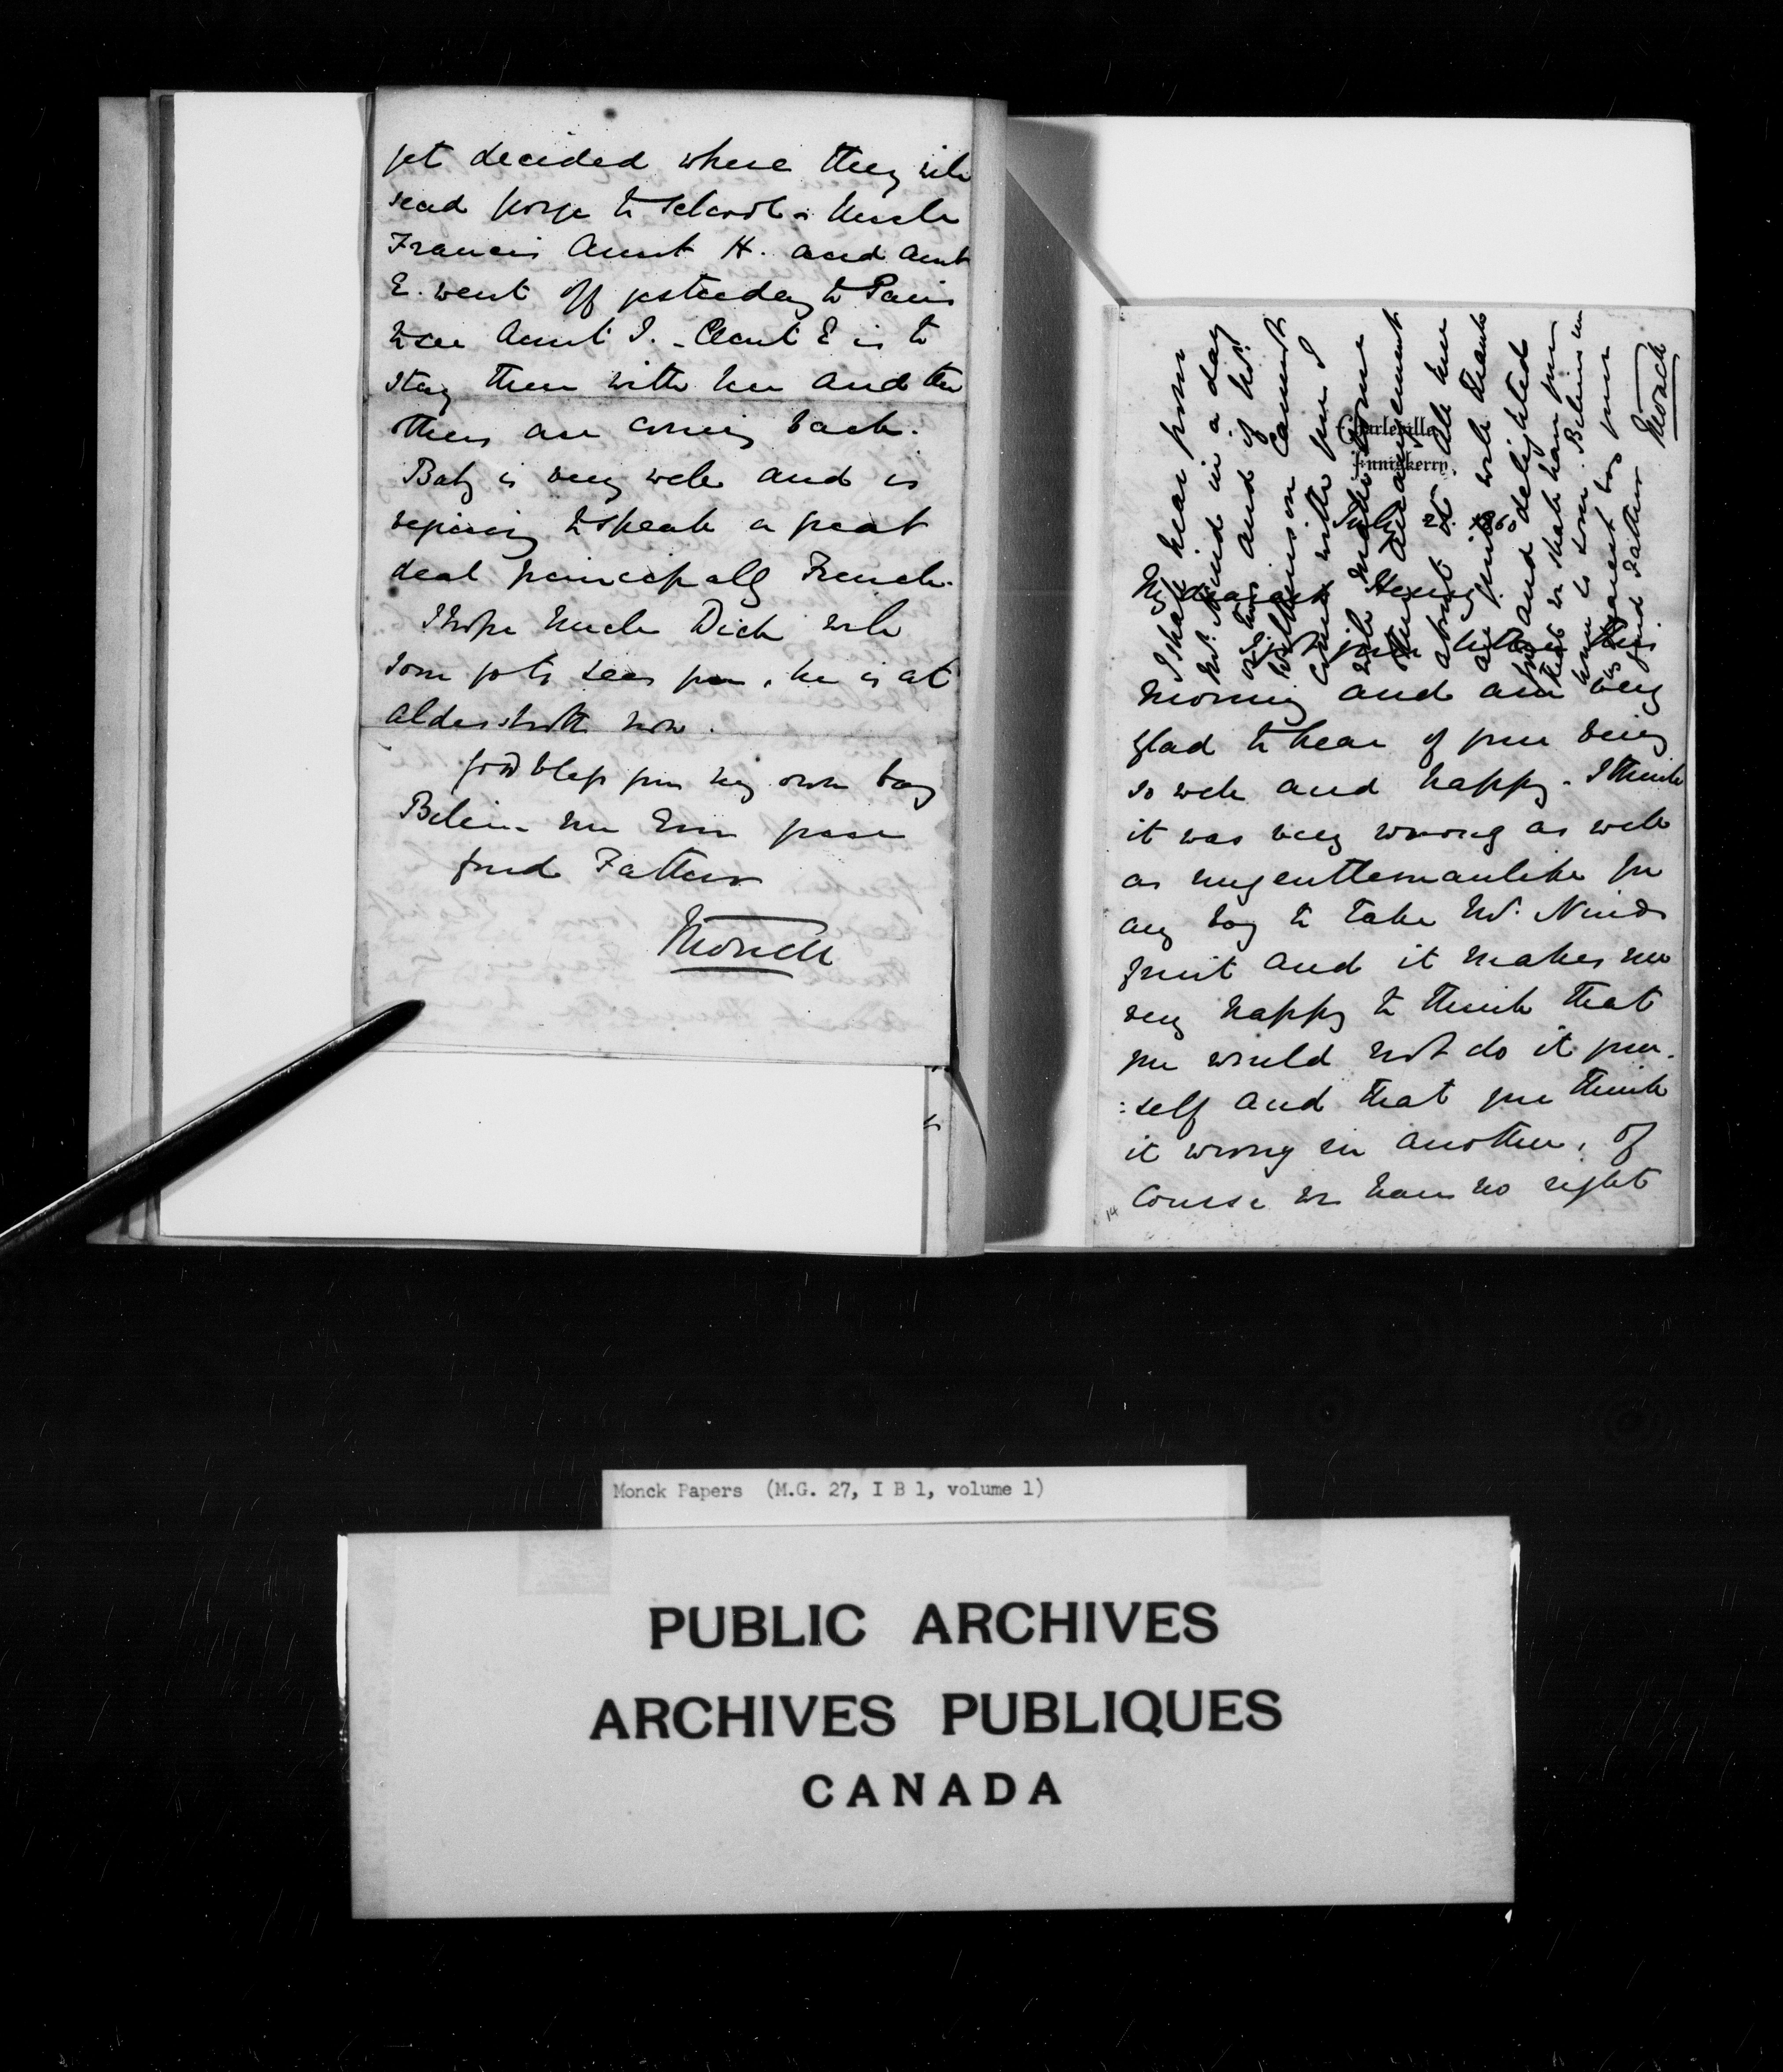 yet decided where they will
send George to school - Uncle
Francis Aunt H. and Aunt
E. went off yesterday to Paris
to see Aunt I. - Aunt E is to
stay there with her and the
others are coming back.
Baby is very well and is
beginning to speak a great
deal principally French.
I hope Uncle Dick will
soon go to see you, he is at
Aldershott now.
God bless you my own boy
Believe me Ever your
fond Father
Monck
Charleville
Enniskerry.
July 25 1860
My dearest Henry
I got your letter this
morning and am very
glad to hear of your being
so well and happy - I think
it was very wrong as well
as ungentlemanlike for
any boy to take Mr. Nind's
fruit and it makes me
very happy to think that
you would not do it your
:self and that you think
it wrong in another, of
course we have no right
14
I shall hear from
Mr. Nind in a day
or two and if Mr.
Wilkinson cannot
come with you I
will make some
other arrangement
about it. All here
are quite well thank
God and delighted
that we shall have you
home so soon. Believe me
my dearest boy your
fond Father
Monck
Monck Papers (M.G. 27, I B 1, volume 1)
PUBLIC ARCHIVES
ARCHIVES PUBLIQUES
CANADA